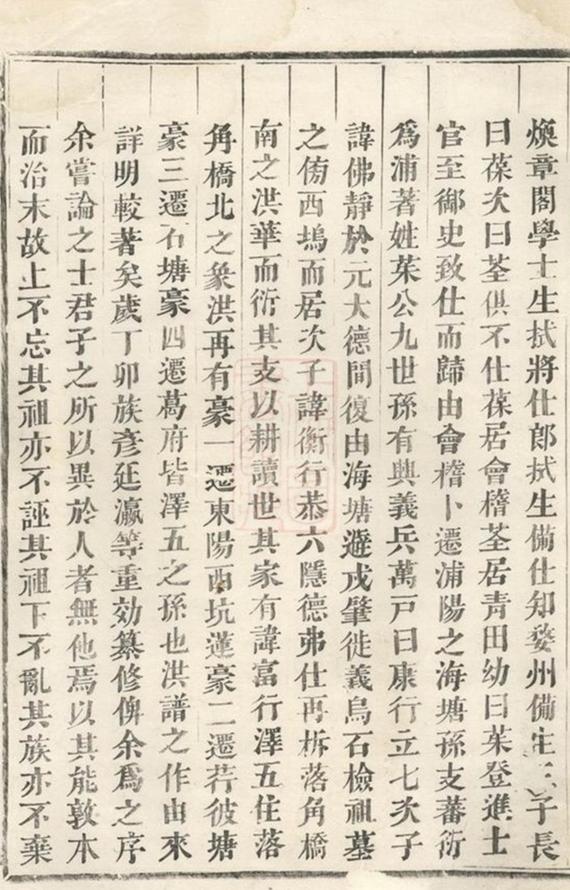 煥章閣學士生拭將仕郎拭生備仕知婺州備生三子長
曰葆次曰荃俱不仕葆居會稽荃居青田幼曰茱登進士
官至御史致仕而歸由會稽卜遷浦陽之海塘孫支蕃衍
爲浦著姓茱公九世孫有與義兵萬戸曰康行立七次子
諱佛靜於元大德間復由海塘遊戍肇徙義烏石檢祖墓
之傍西塢而居次子諱衡行恭六隱德弗仕再柝落角橋
南之洪華而衍其支以耕讀世其家有諱富行澤五住落
角橋北之象洪再有豪一遷東陽西坑蓮豪二遷荇彼塘
豪三遷石塘豪四遷葛府皆澤五之孫也洪譜之作由來
詳明較著矣歲丁卯族彥廷瀛等重効纂修俾余爲之序
余嘗論之士君子之所以異於人者無他焉以其能敦本
而治末故上不忘其祖亦不誣其祖下不亂其族亦不棄